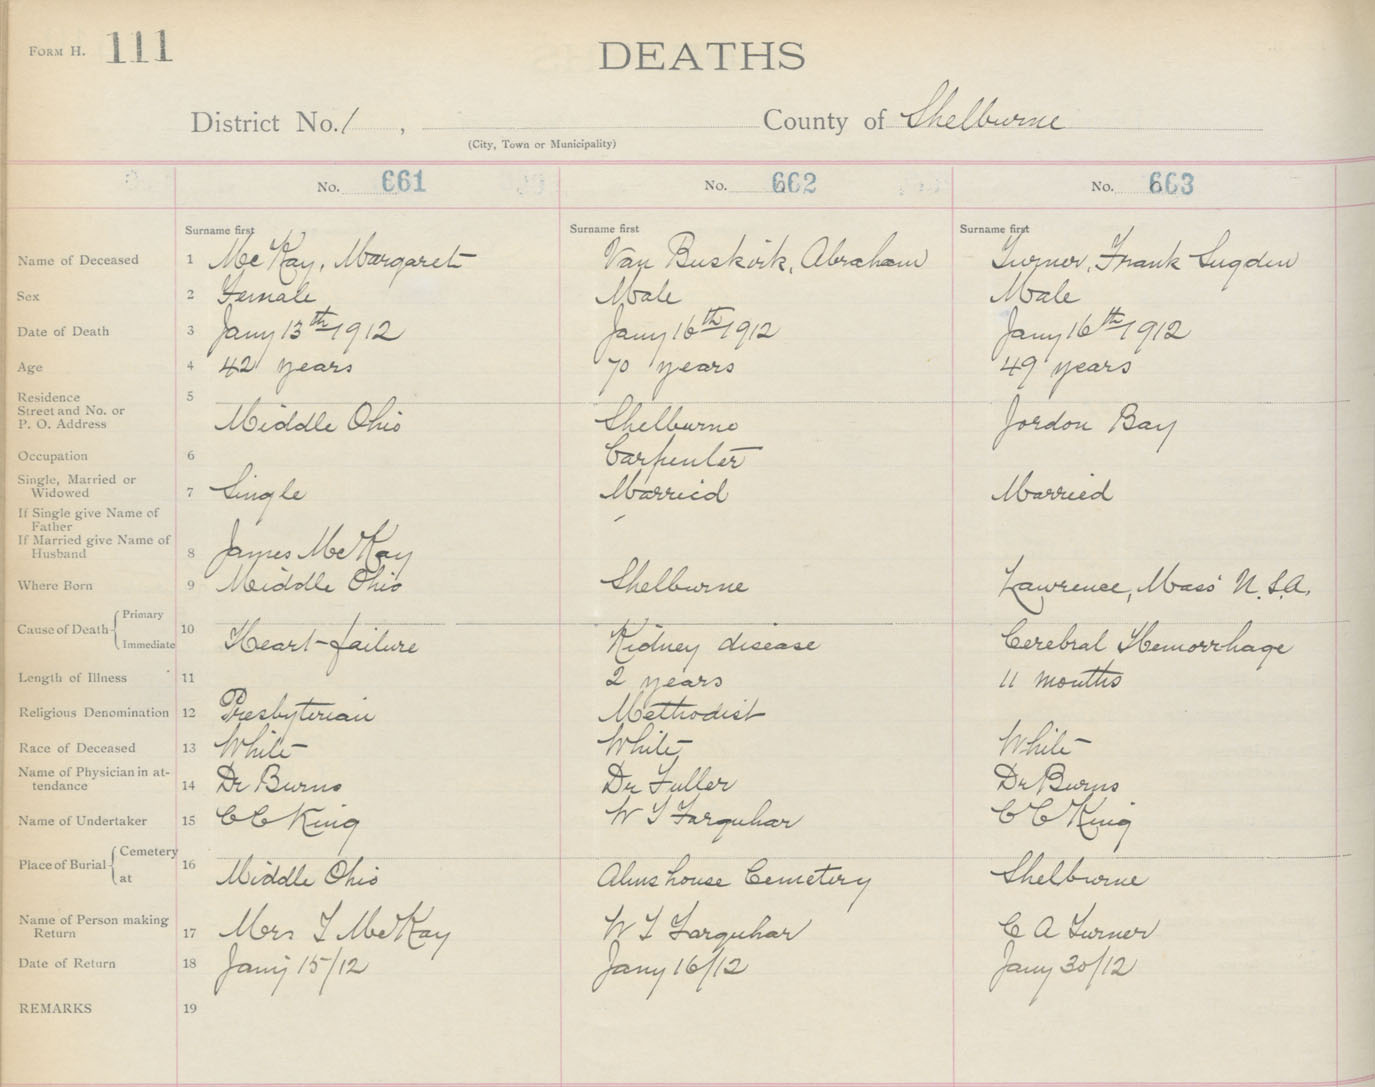 FORM H. 111
DEATHS
District No. 1 , County of Shelburne
(City, Town or Municipality)
No. 661 No. 662 No. 663
Surname first Surname first Surname first
Name of Deceased 1 McKay, Margaret Van Buskirk, Abraham Turner, Frank Sugden
Sex 2 Female Male Male
Date of Death 3 Jany 13th 1912 Jany 16th 1912 Jany 16th 1912
Age 4 42 years 70 years 49 years
Residence 5
Street and No. or
P. O. Address Middle Ohio Shelburne Jordon Bay
Occupation 6 Carpenter
Single, Married or
Widowed 7 Single Married Married
If Single give Name of
Father
If Married give Name of
Husband 8 James McKay
Where Born 9 Middle Ohio Shelburne Lawrence, Mass U.S.A.
Cause of Death Primary 10
Immediate Heart-failure Kidney disease Cerebral Hemorrhage
Length of Illness 11 2 years 11 months
Religious Denomination 12 Presbyterian Methodist
Race of Deceased 13 White White White
Name of Physician in at-
tendance 14 Dr Burns Dr Fuller Dr Burns
Name of Undertaker 15 C C King W T Farquhar C C King
Place of Burial Cemetery 16
at Middle Ohio Almshouse Cemetery Shelburne
Name of Person making
Return 17 Mrs T McKay W T Farquhar C A Turner
Date of Return 18 Jany 15/12 Jany 16/12 Jany 30/12
REMARKS 19